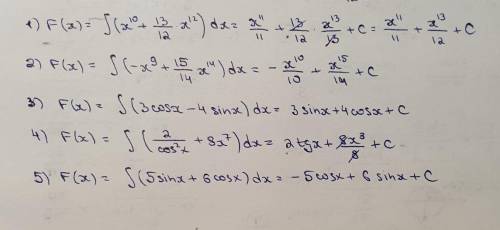 1) F(x) = ∫(x¹⁰ + 13/12 · x¹²) dx = x¹¹/11 + 13/12 · x¹³/13 + C = x¹¹/11 + x¹³/12 + C
2) F(x) = ∫(-x⁹ + 15/14 x¹⁴) dx = - x¹⁰/10 + x¹⁵/14 + C
3) F(x) = ∫(3cosx - 4 sinx) dx = 3 sinx + 4 cosx + C
4) F(x) = ∫(2/cos²x + 8x⁷) dx = 2 tgx + 8x⁸/8 + C
5) F(x) = ∫(5 sinx + 6 cosx) dx = -5 cosx + 6 sinx + C